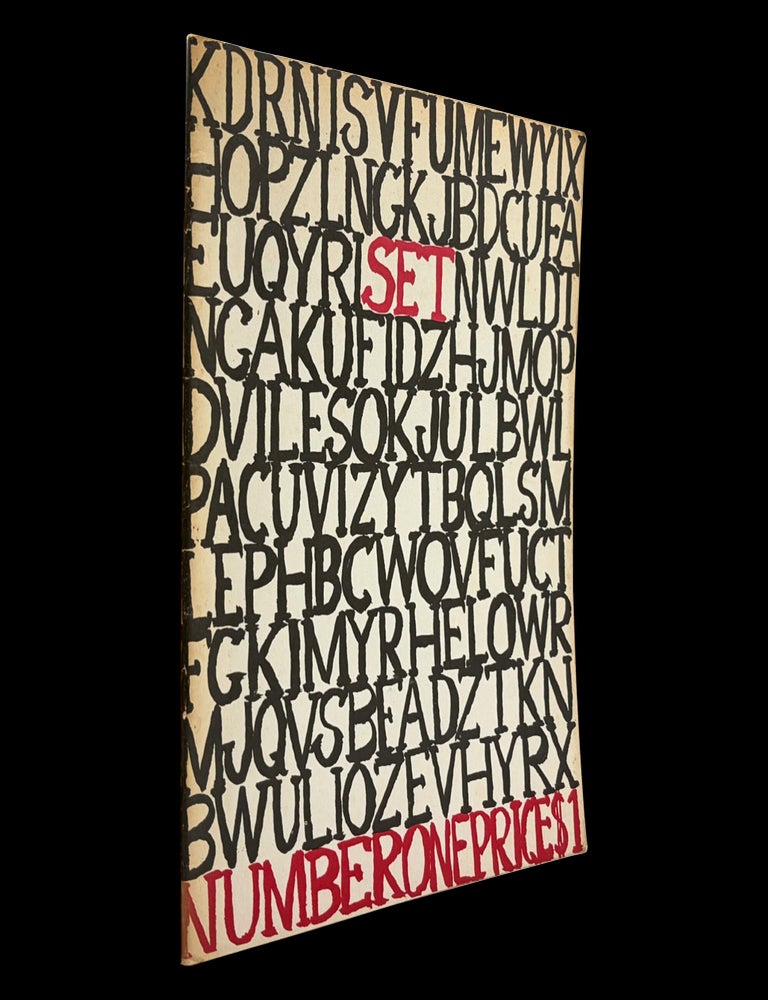 KDRNISVFUMEWYIX
HOPZLNGKJBDCUFA
EUQYRISETNWLDT
NGAKUFIDZHJMOP
DVILESOKJULBWL
PACUVIZYTBQLSM
LEPHBCWOVFUCT
FGKIMYRHELOWR
MJQVSBEADZTKN
BWULIOZEVHYRX
NUMBERONEPRICE$1